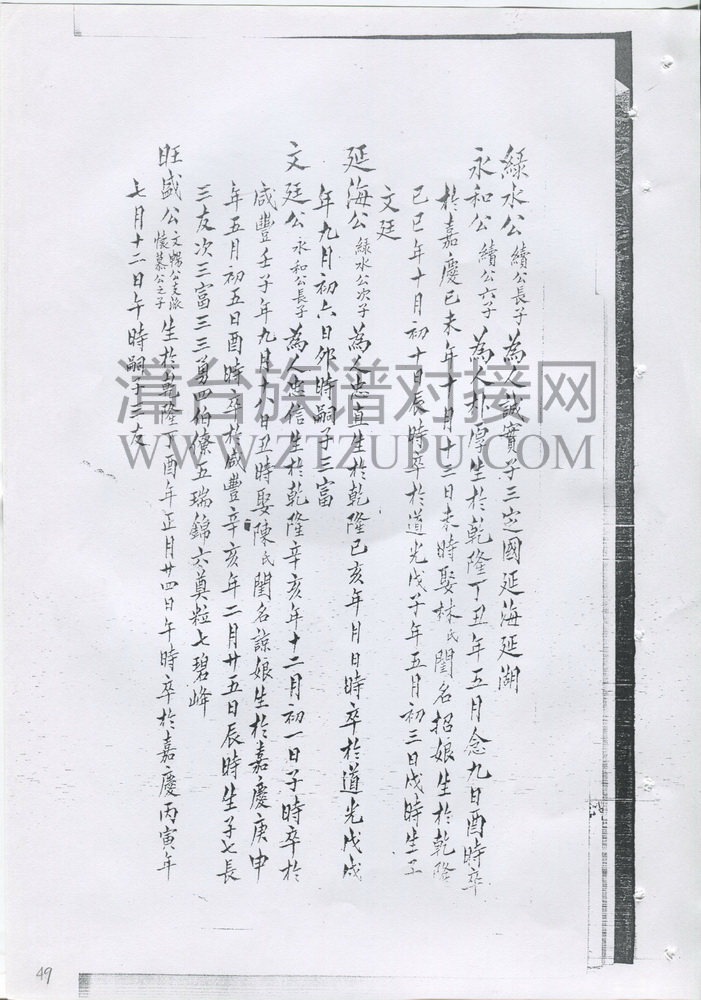 綠水公 續公長子 為人誠實子三定國延海延湖
永和公 續公六子 為人朴厚生於乾隆丁丑年五月念九日酉時卒
於嘉慶己未年十月十三日未時娶林氏閨名招娘生於乾隆
己巳年十月初十日辰時卒於道光戊子年五月初三日戌時生子
文廷
延海公 綠水公次子 為人忠直生於乾隆己亥年月日時卒於道光戊戌
年九月初六日卯時嗣子三富
文廷公 永和公長子 為人忠信生於乾隆辛亥年十二月初一日子時卒於
咸豐壬子年九月十八日丑時娶陳氏閨名諒娘生於嘉慶庚申
年五月初五日酉時卒於咸豐辛亥年二月廿五日辰時生子七長
三友次三富三三勇四伯僚五瑞錦六奠粒七碧峰
旺盛公 文暢公支派 懷慕公之子 生於乾隆丁酉年正月廿四日午時卒於嘉慶丙寅年
七月十二日午時嗣子三友
漳台族谱对接网
WWW.ZTZUPU.COM
49